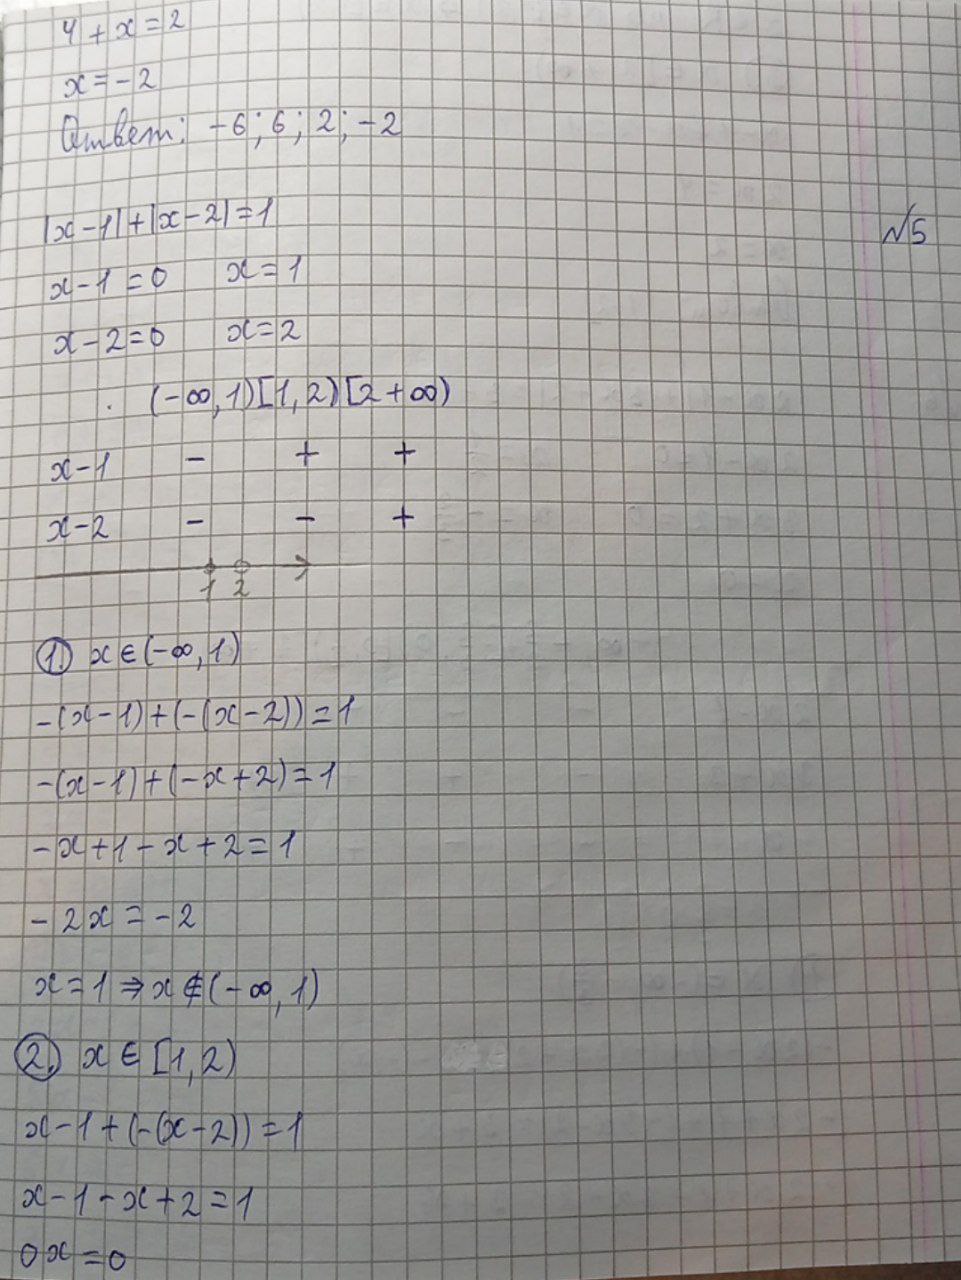 4 + x = 2
x = - 2
Ответ: -6; 6; 2; -2
|x-1|+|x-2|=1
№5
x-1=0 x=1
x-2=0 x=2
(-∞,1)[1,2)[2+∞)
x-1 - + +
x-2 - - +
1 2
1. x∈(-∞,1)
-(x-1)+(-(x-2))=1
-(x-1)+(-x+2)=1
-x+1-x+2=1
-2x=-2
x=1⇒x∉(-∞,1)
2. x∈[1,2)
x-1+(-(x-2))=1
x-1-x+2=1
0x=0